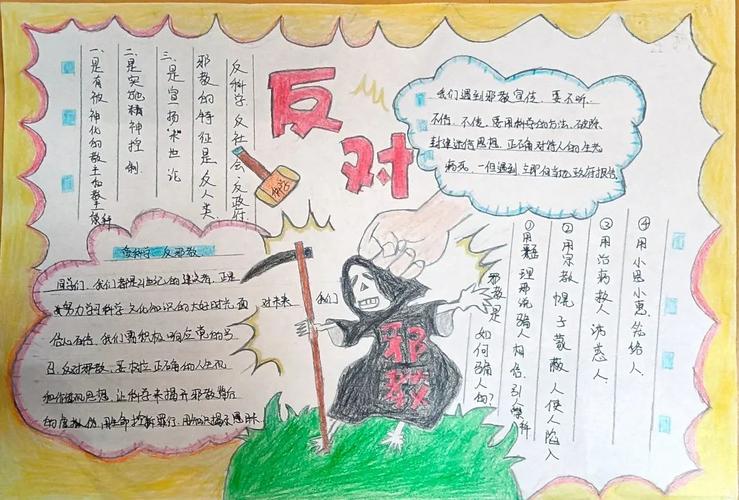 反对
反科学、反社会、反政府
邪教的特征是反人类、
三、是宣扬“末世论
二、是实施精神控制.
一、是有被神化的教主和教主
我们遇到邪教宣传，要不听、
不信、不传，要用科学的方法，破除
封建迷信思想，正确对待人的生老
病死，一但遇到，立即向当地政府报告
爱科学 反邪教
同学们，我们都是21世纪的建设者，正是
要努力学习科学文化知识的大好时光，面对未来，我们
信心百倍，我们要积极响应党的号
召，反对邪教，要树立正确的人生观
和价值观思想，让科学来揭开邪教
的虚拟
邪教
邪教是如何骗人的？
①用理邪说骗人相信.引
②用宗教幌子蒙蔽人使人陷入
③用治病救人诱惑人
④用小恩小惠笼络人.